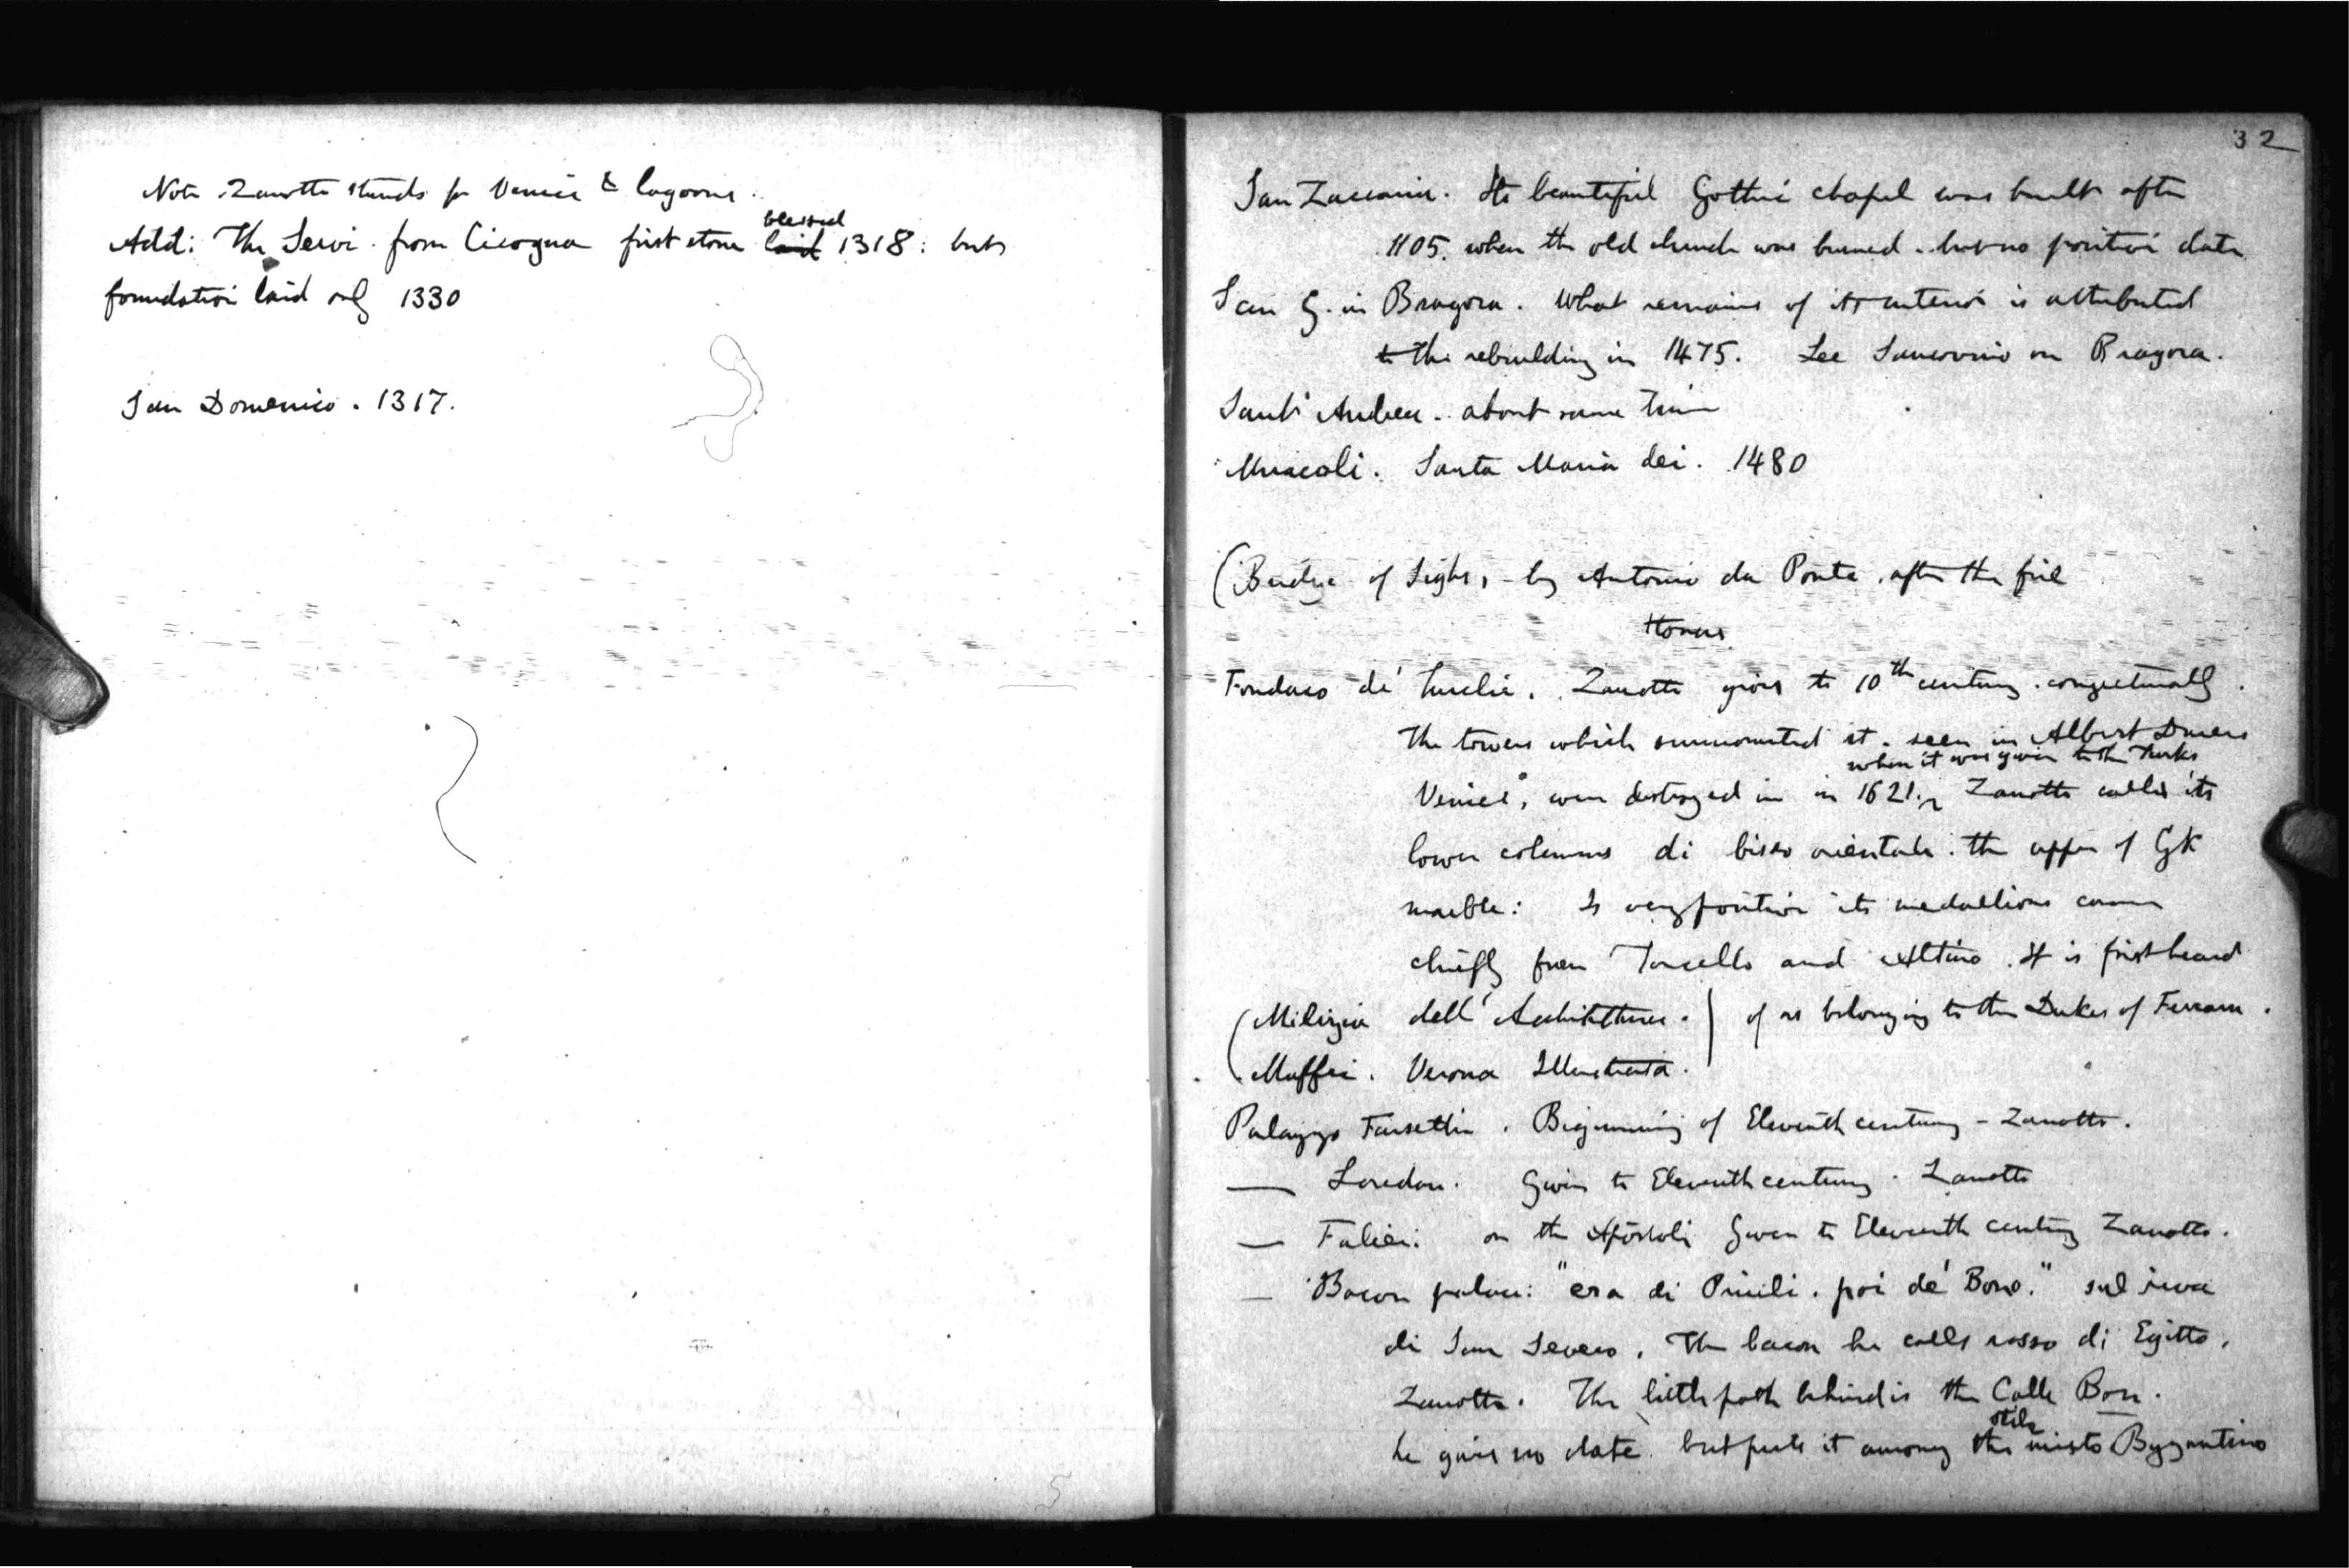 Note Zanotto stands for Venice & lagoons.
Add: The Servi. from Cicogna first stone laid blessed 1318: but
foundation laid only 1330
San Domenico. 1317.
32
San Zaccaria. Its beautiful Gothic chapel was built after
1105. when the old church was burned - but no positive date
San G. in Bragora. What remains of its interior is attributed
to the rebuilding in 1475. See Sansovino on Bragora.
Sant' Andrea - about same time
Miracoli. Santa Maria dei. 1480
(Bridge of Sighs, - by Antonio da Ponte, after the fire
Fondaco de' Turchi. Zanotto gives to 10th century. conjecturally.
The towers which surmounted it. seen in Albert Durers
when it was given to the Turks
Venice, were destroyed in in 1621. Zanotto calls its
lower columns di bisso orientale: the upper of Gk
marble: Is very positive its medallions came
chiefly from Torcello and Altino. It is first heard
(Milizia dell' Architettura.) of as belonging to the Dukes of Ferrara.
Maffei. Verona Illustrata.
Palazzo Farsetti. Beginning of Eleventh century - Zanotto.
— Loredan. Given to Eleventh century. Zanotto
— Falier: on the Apostoli Given to Eleventh century Zanotto.
— Bacon palace: "era di Priuli. poi de' Bono." sul riva
di San Severo. The bacon he calls rosso di Egitto.
Zanotto. The little path behind is the Calle Bon.
stile
he gives no date. but puts it among the misto Byzantino